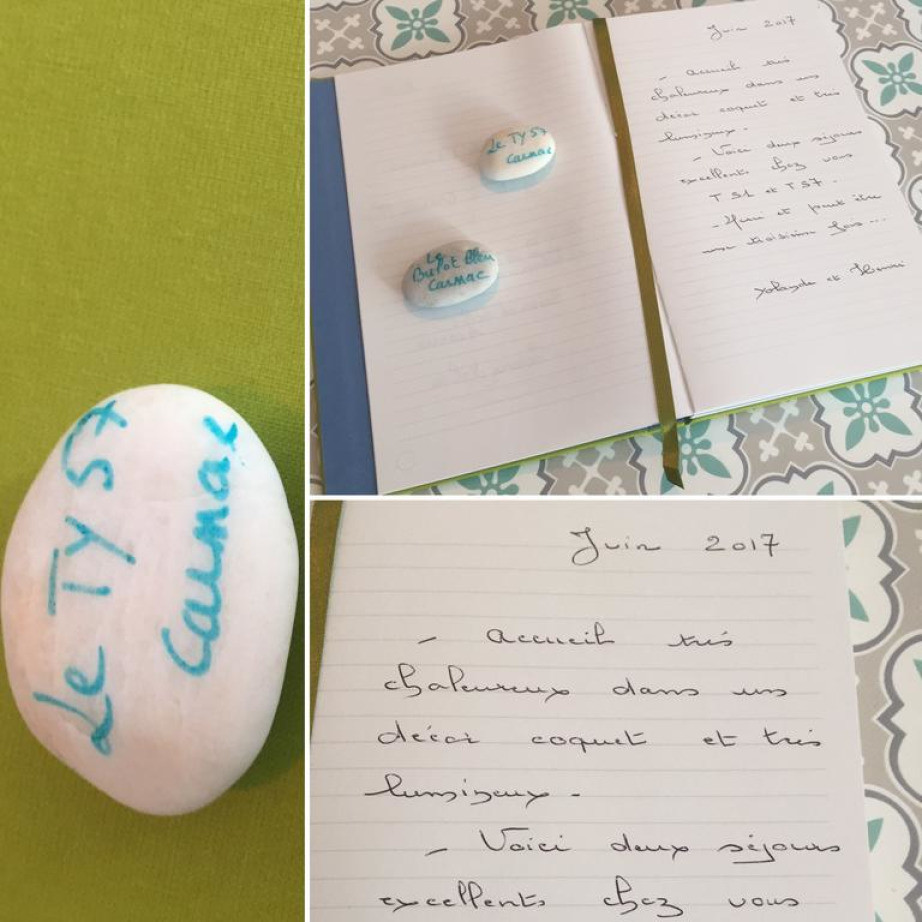 Le TY 57
Carnac
Le TY 57
Carnac
Le
Bulot Bleu
Carnac
Juin 2017
- accueil très
chaleureux dans un
décor coquet et très
lumineux.
- Voici deux séjours
excellents chez vous
T 51 et T 57.
- Merci et peut être
une troisième fois...
Yolande et Henri
Juin 2017
- accueil très
chaleureux dans un
décor coquet et très
lumineux.
- Voici deux séjours
excellents chez vous